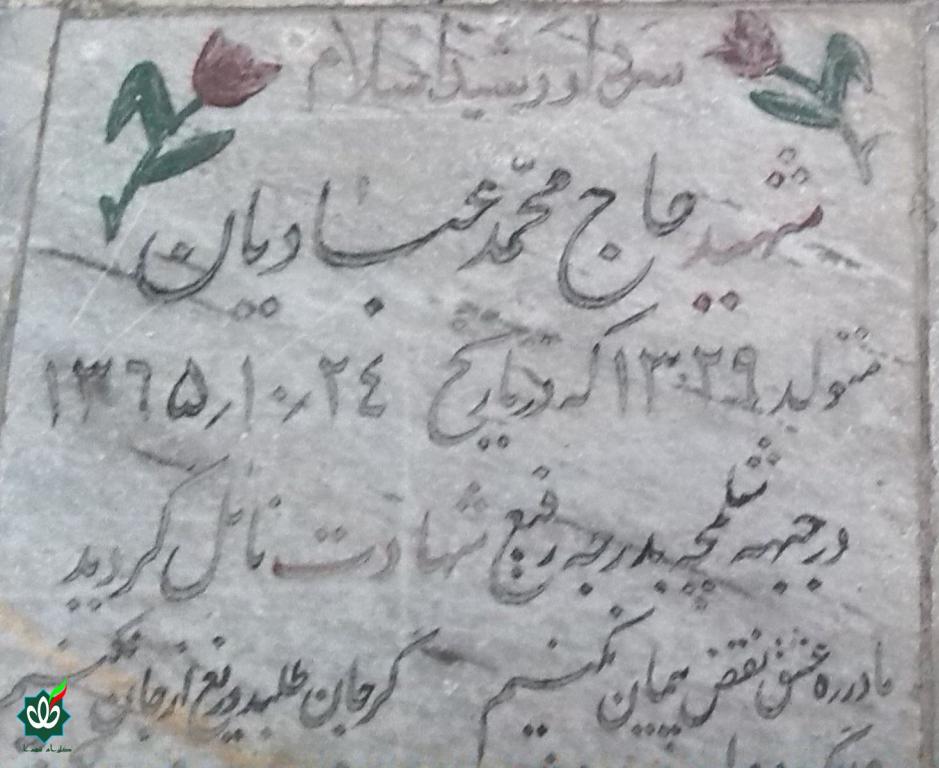 سردار رشید اسلام
شهید حاج محمّد عبادیان
متولد ۱۳۲۹ که در تاریخ ۱۳۶۵/۱۰/۲۴
در جبهه شلمچه بدرجه رفیع شهادت نائل گردید
ما در ره عشق نقض پیمان نکنیم گر جان طلبد دریغ از جان نکنیم